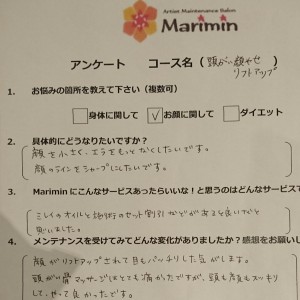 Artist Maintenance Salon
Marimin
アンケート コース名（頭がい顔やせ
リフトアップ
1. お悩みの箇所を教えて下さい（複数可）
□身体に関して ☑お顔に関して □ダイエット
2. 具体的にどうなりたいですか？
顔を小さく、エラをもっとなくしたいです。
顔のラインをシャープにしたいです。
3. Mariminにこんなサービスあったらいいな！と思うのはどんなサービスで
ミレイのオイルと施術のセット割引などがあると良いなと
思いました。
4. メンテナンスを受けてみてどんな変化がありましたか？感想をお願いし
顔がリフトアップされて目もパッチリした気がします。
頭がい骨マッサージはとても痛かったですが、頭も顔もスッキリ
して、やって良かったです。